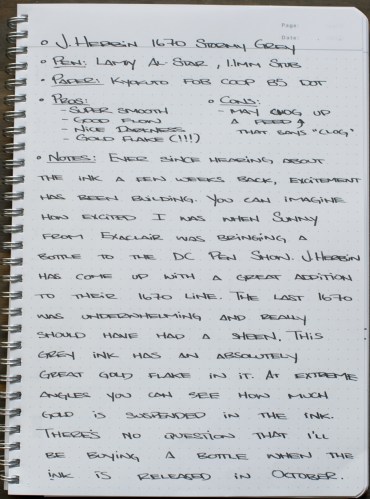 Page:
Date:
• J. Herbin 1670 Stormy Grey
• Pen: Lamy Al-Star, 1.1mm Stub
• Paper: Kyokuto FOB COOP B5 Dot
• Pros:
- Super Smooth
- Good Flow
- Nice Darkness
- Gold Flake (!!!)
• Cons:
- May clog up
a feed
that says "clog"
• Notes: Ever since hearing about
the ink a few weeks back, excitement
has been building. You can imagine
how excited I was when Sunny
from Exaclair was bringing a
bottle to the DC Pen Show. J. Herbin
has come up with a great addition
to their 1670 line. The last 1670
was underwhelming and really
should have had a sheen. This
grey ink has an absolutely
great gold flake in it. At extreme
angles you can see how much
gold is suspended in the ink.
There's no question that I'll
be buying a bottle when the
ink is released in October.